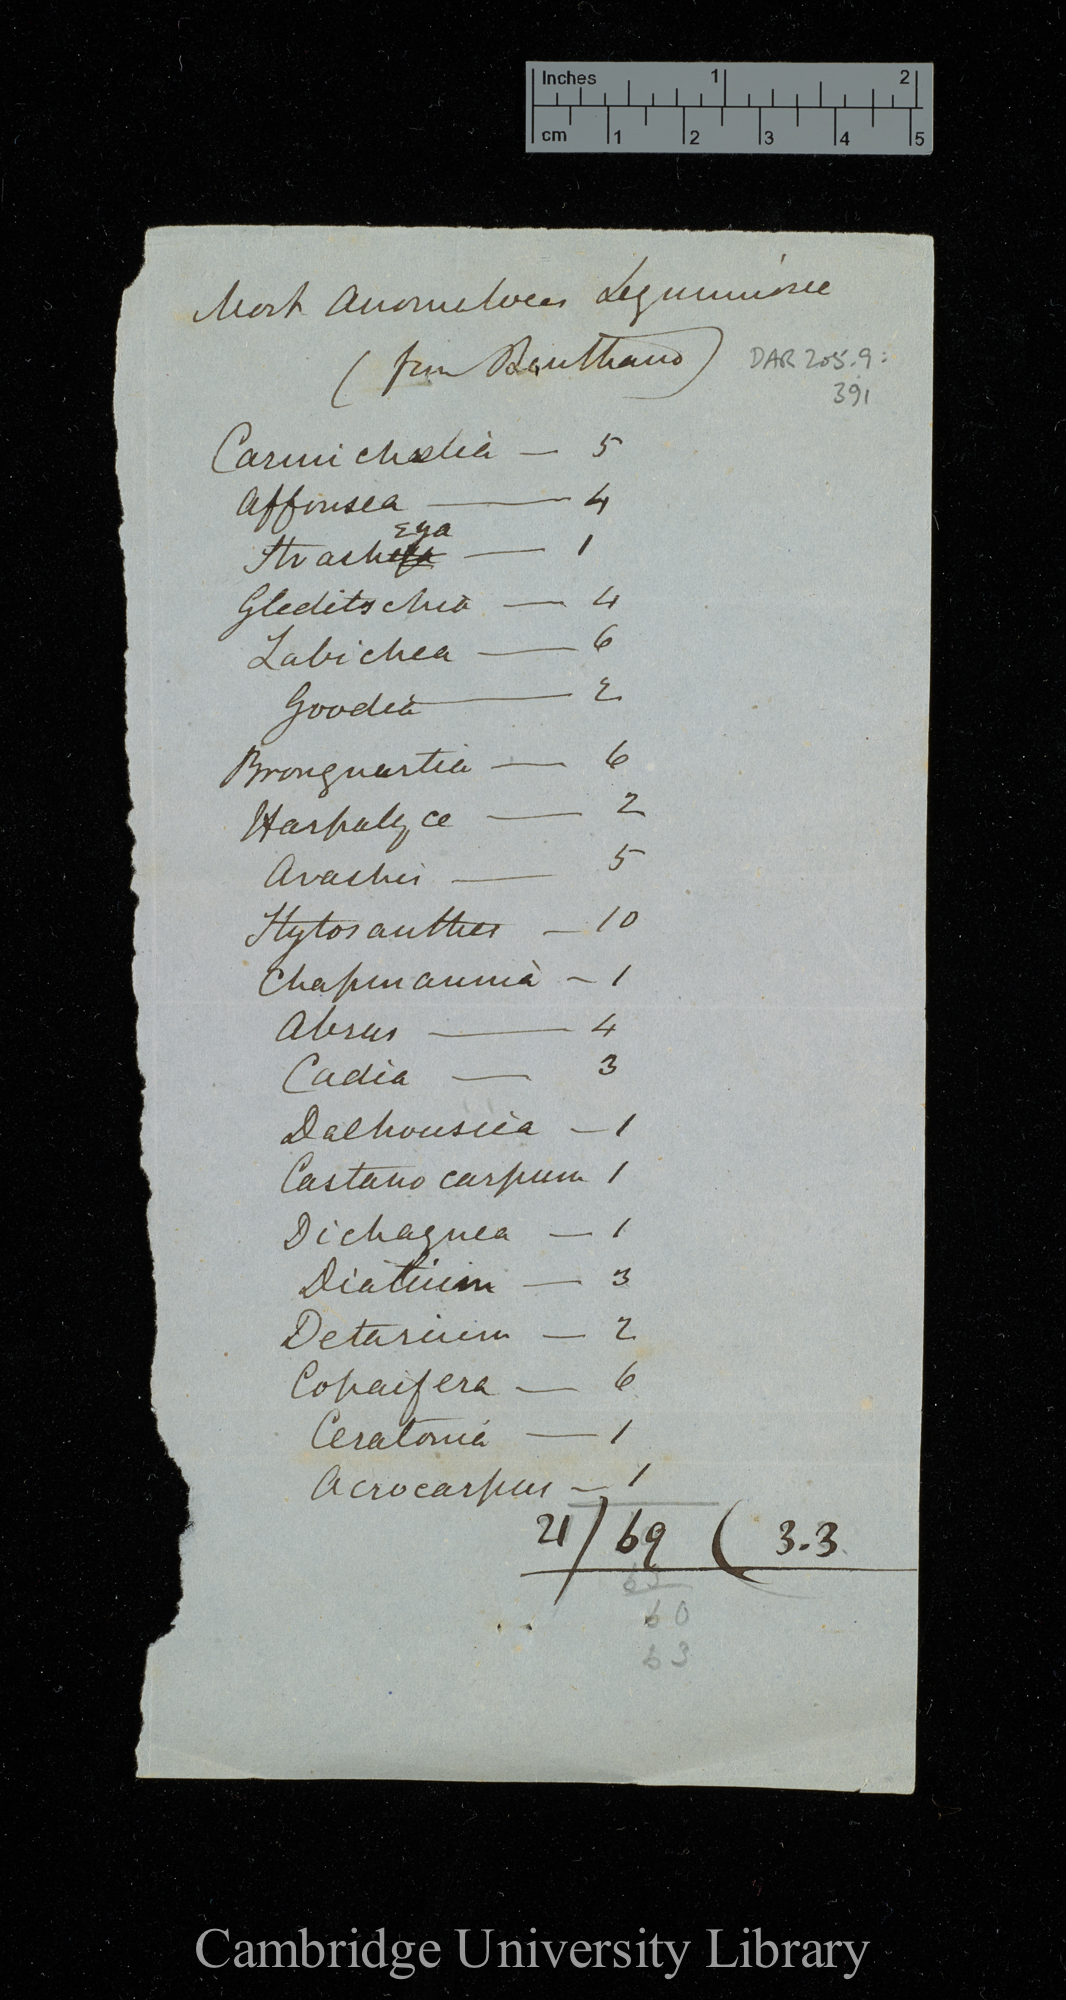 Inches 1 2
cm 1 2 3 4 5
Most Anomalous Leguminosae
(from Benthams)
DAR 205.9:
391
Carmichaelia — 5
Affonsea — 4
Eya
Strach — 1
Gleditschia — 4
Labichea — 6
Goodia — 2
Brongnartia — 6
Harpalyce — 2
Arachis — 5
Stylosanthes — 10
Chapmannia — 1
Abrus — 4
Cadia — 3
Dalhousiea — 1
Castanocarpum 1
Dichagnea — 1
Dialium — 3
Detarium — 2
Copaifera — 6
Ceratonia — 1
Acrocarpus — 1
21 / 69 ( 3.3
63
60
63
Cambridge University Library